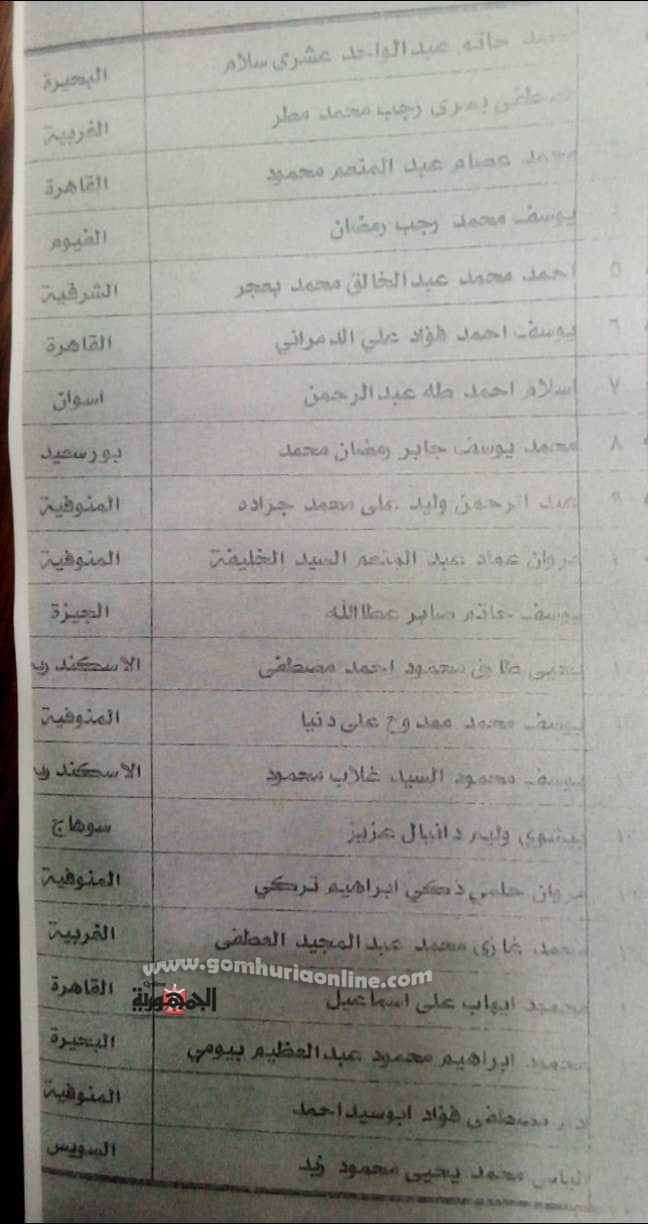 محمد حاتم عبد الواحد عشرى سلام البحيرة
مصطفى يسرى رجب محمد مطر الغربية
محمد عصام عبد المنعم محمود القاهرة
يوسف محمد رجب رمضان الفيوم
٥ احمد محمد عبدالخالق محمد بعجر الشرقية
٦ يوسف احمد فؤاد علي الدمراني القاهرة
٧ اسلام احمد طه عبدالرحمن اسوان
٨ محمد يوسف جابر رمضان محمد بورسعيد
٩ عبد الرحمن وليد على محمد جراده المنوفية
مروان عماد عبد المنعم السيد الخليفة المنوفية
يوسف حاتم صابر عطاالله الجيزة
يحيى محمود احمد مصطفى الاسكندري
يوسف محمد ممدوح على دنيا المنوفية
يوسف محمود السيد غلاب محمود الاسكندري
بيشوي وليم دانيال عزيز سوهاج
مروان حلمي ذكي ابراهيم تركي المنوفية
محمد غازى محمد عبد المجيد العطفى الغربية
www.gomhuriaonline.com
Online
الجمهورية
محمود ايهاب على اسماعيل القاهرة
محمود ابراهيم محمود عبدالعظيم بيومي البحيرة
مصطفى فؤاد ابوسيداحمد المنوفية
محمد يحيى محمود السويس